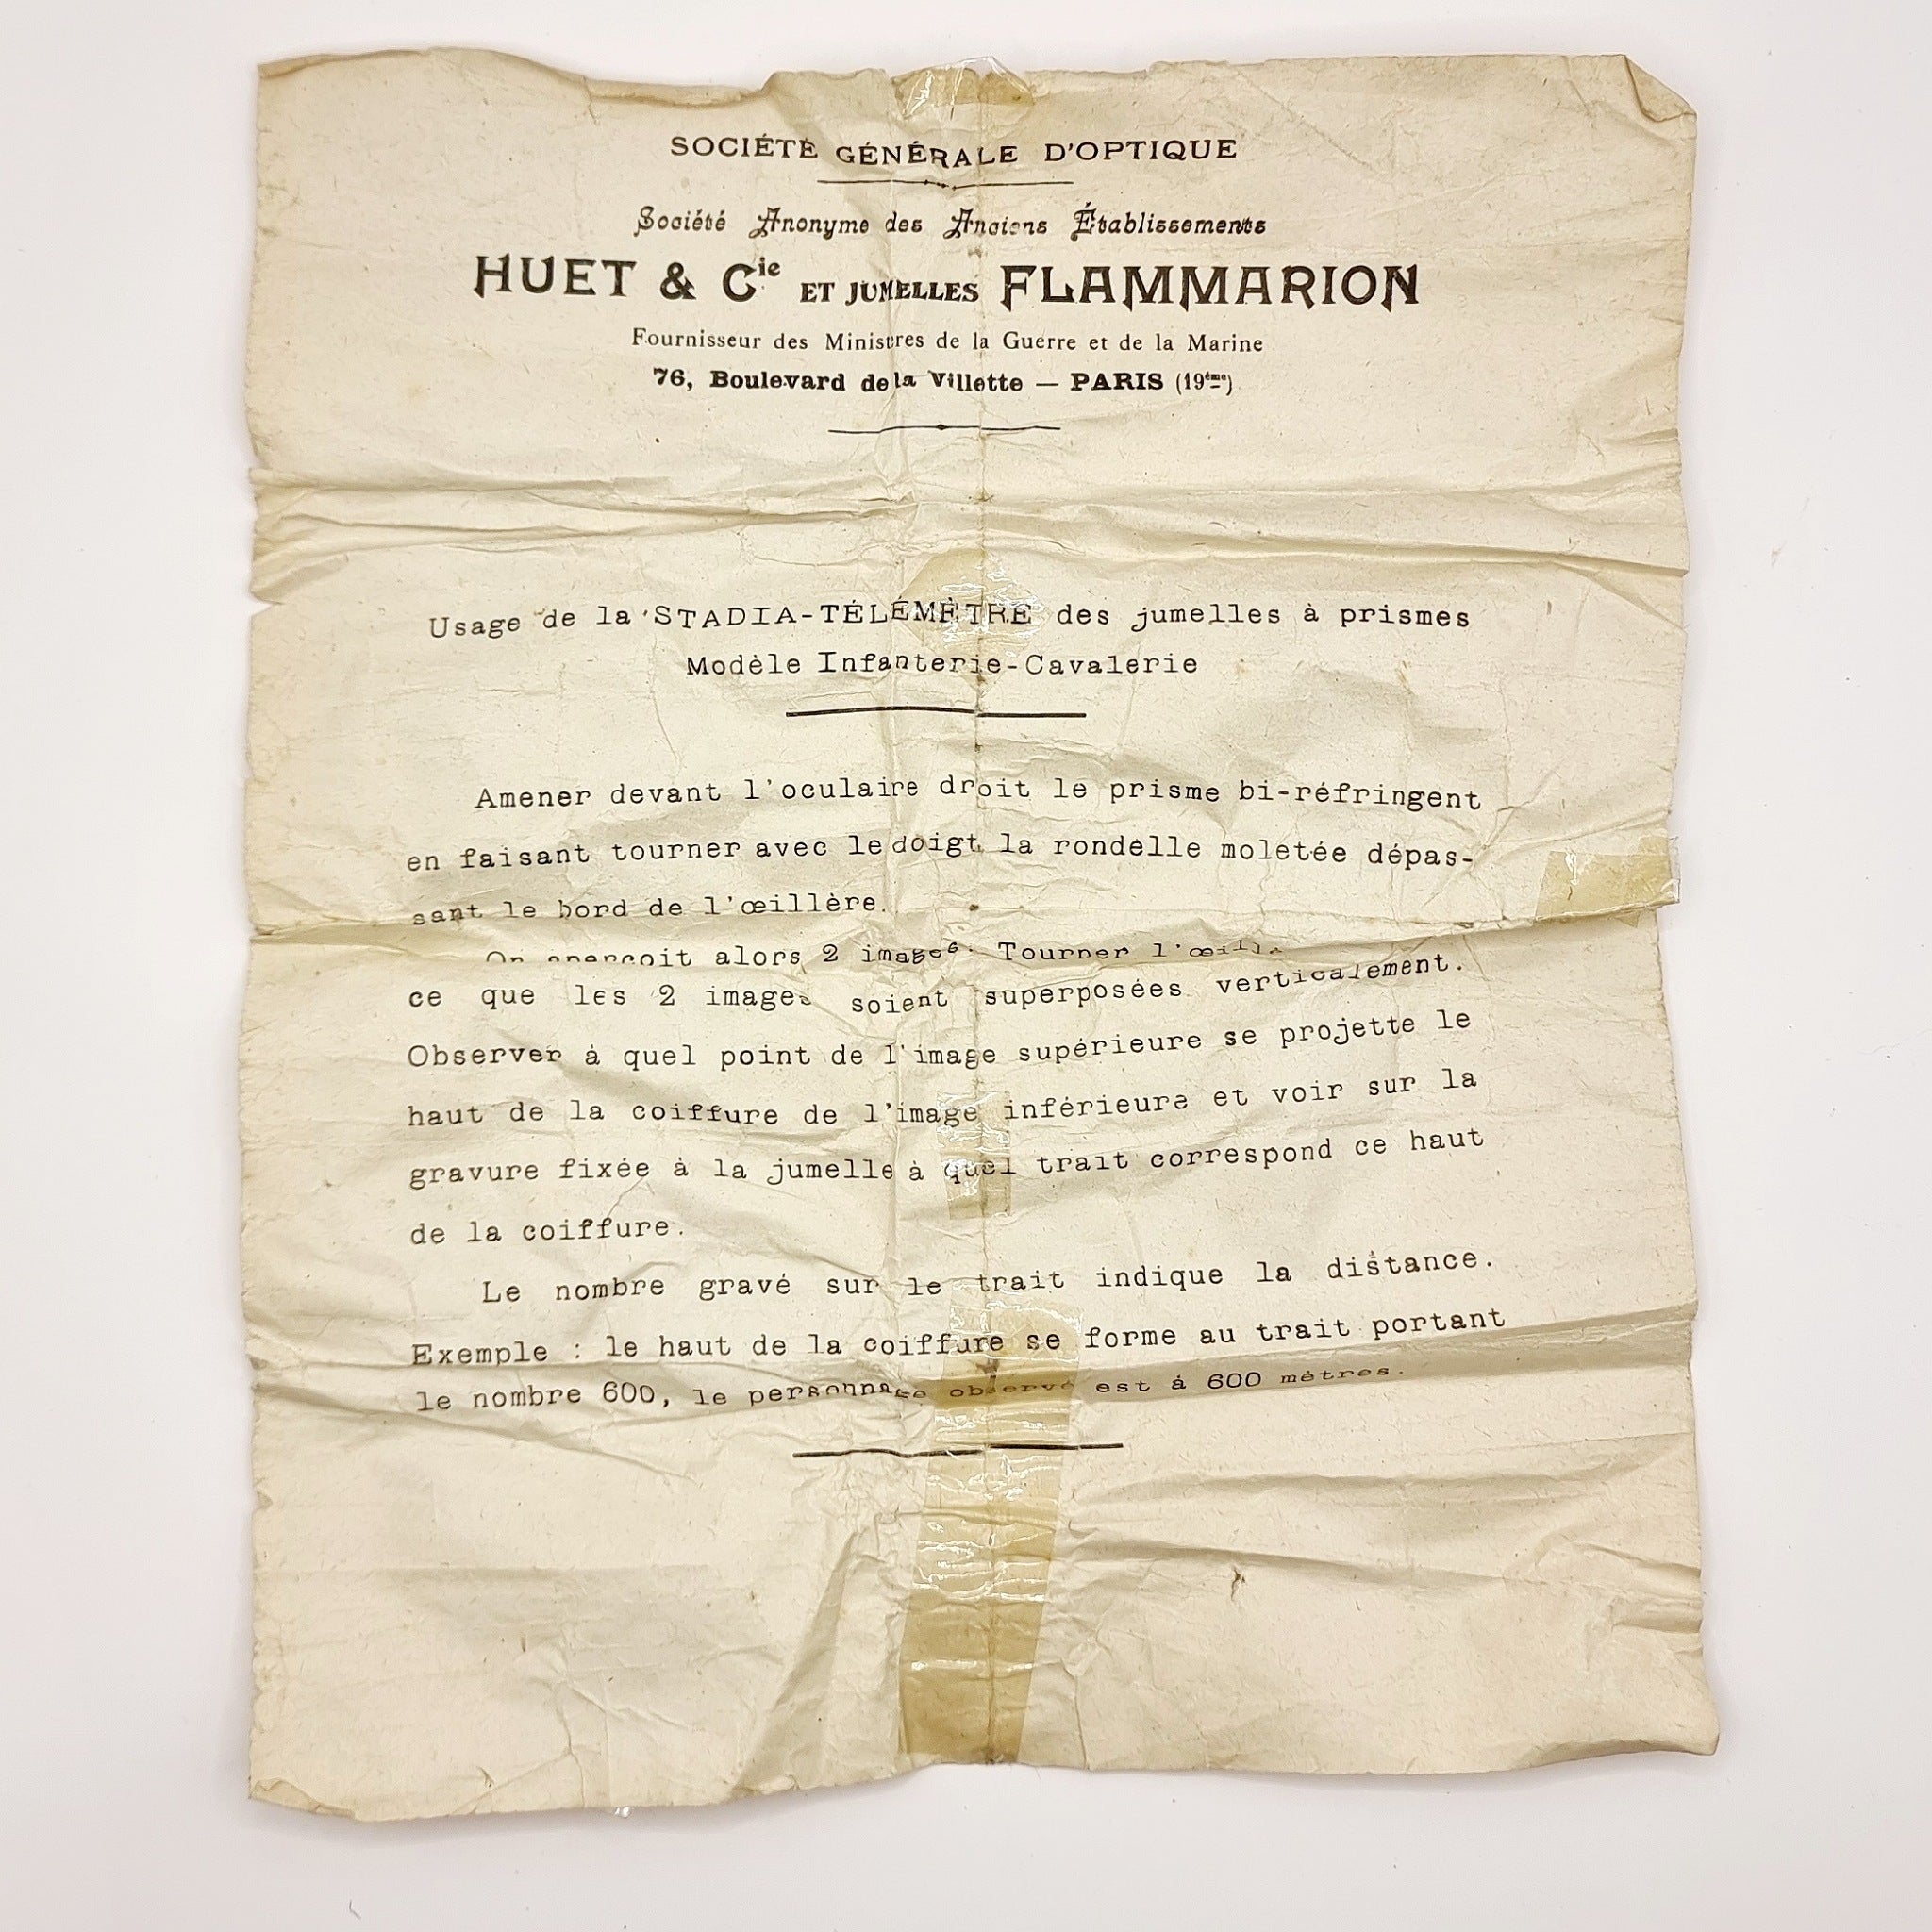 SOCIÉTÉ GÉNÉRALE D'OPTIQUE
Société Anonyme des Anciens Établissements
HUET & Cie ET JUMELLES FLAMMARION
Fournisseur des Ministres de la Guerre et de la Marine
76, Boulevard de la Villette — PARIS (19ème)
Usage de la STADIA-TÉLÉMÈTRE des jumelles à prismes
Modèle Infanterie-Cavalerie
Amener devant l'oculaire droit le prisme bi-réfringent
en faisant tourner avec le doigt la rondelle moletée dépas-
sant le bord de l'œillère.
On aperçoit alors 2 images. Tourner
ce que les 2 images soient superposées verticalement.
Observer à quel point de l'image supérieure se projette le
haut de la coiffure de l'image inférieure et voir sur la
gravure fixée à la jumelle à quel trait correspond ce haut
de la coiffure.
Le nombre gravé sur le trait indique la distance.
Exemple : le haut de la coiffure se forme au trait portant
le nombre 600, le personnage observé est à 600 mètres.